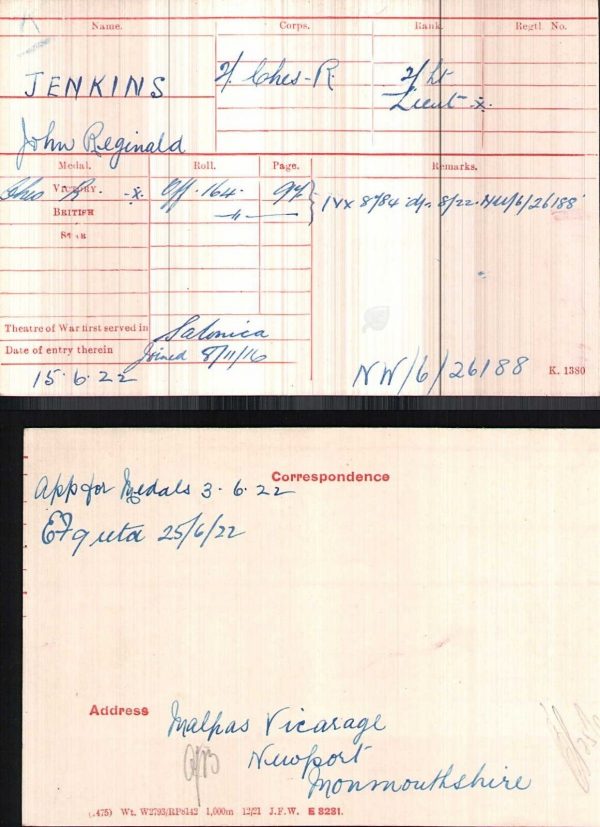 Name. Corps. Rank. Regtl. No.
JENKINS 2/ Ches-R. 2/Lt
Lieut -x.
John Reginald
Medal. Roll. Page. Remarks.
Ches R. VICTORY -x. Off. 164. 97 IVX 8784 8/22. NW/6/26188
BRITISH -"-
STAR
Theatre of War first served in Salonica
Date of entry therein Joined 8/11/16
15.6.22 NW/6/26188 K. 1380
Correspondence
App for Medals 3.6.22
EF 25/6/22
Address Malpas Vicarage
Newport
Monmouthshire
(.475) Wt. W2793/RP8142 1,000m 12/21 J.F.W. E 8281.